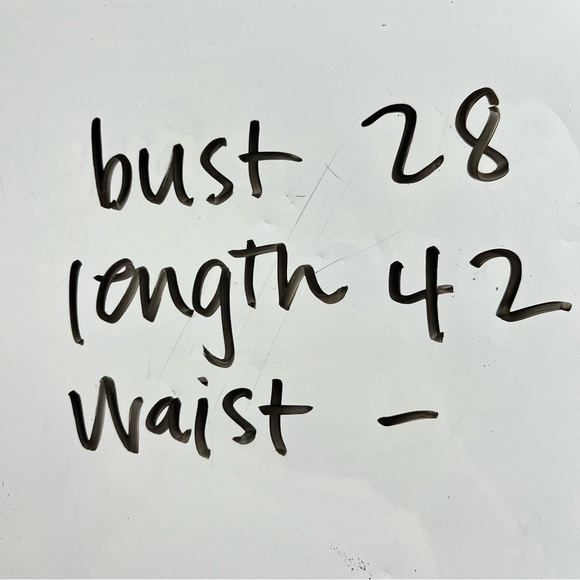 bust 28
length 42
Waist -